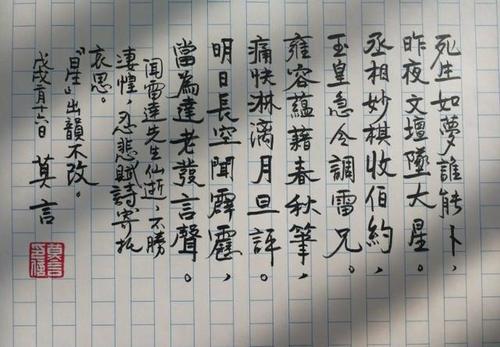 死生如夢誰能卜，
昨夜文壇墜大星。
丞相妙棋收伯約，
玉皇急令調雷兄。
雍容蘊藉春秋筆，
痛快淋漓月旦評。
明日長空聞霹靂，
當為達老發言聲。
聞雷達先生仙逝，不勝
悽惶，忍悲賦詩寄托
哀思。
“星”出韻不改。
戊戌二月十六日 莫言